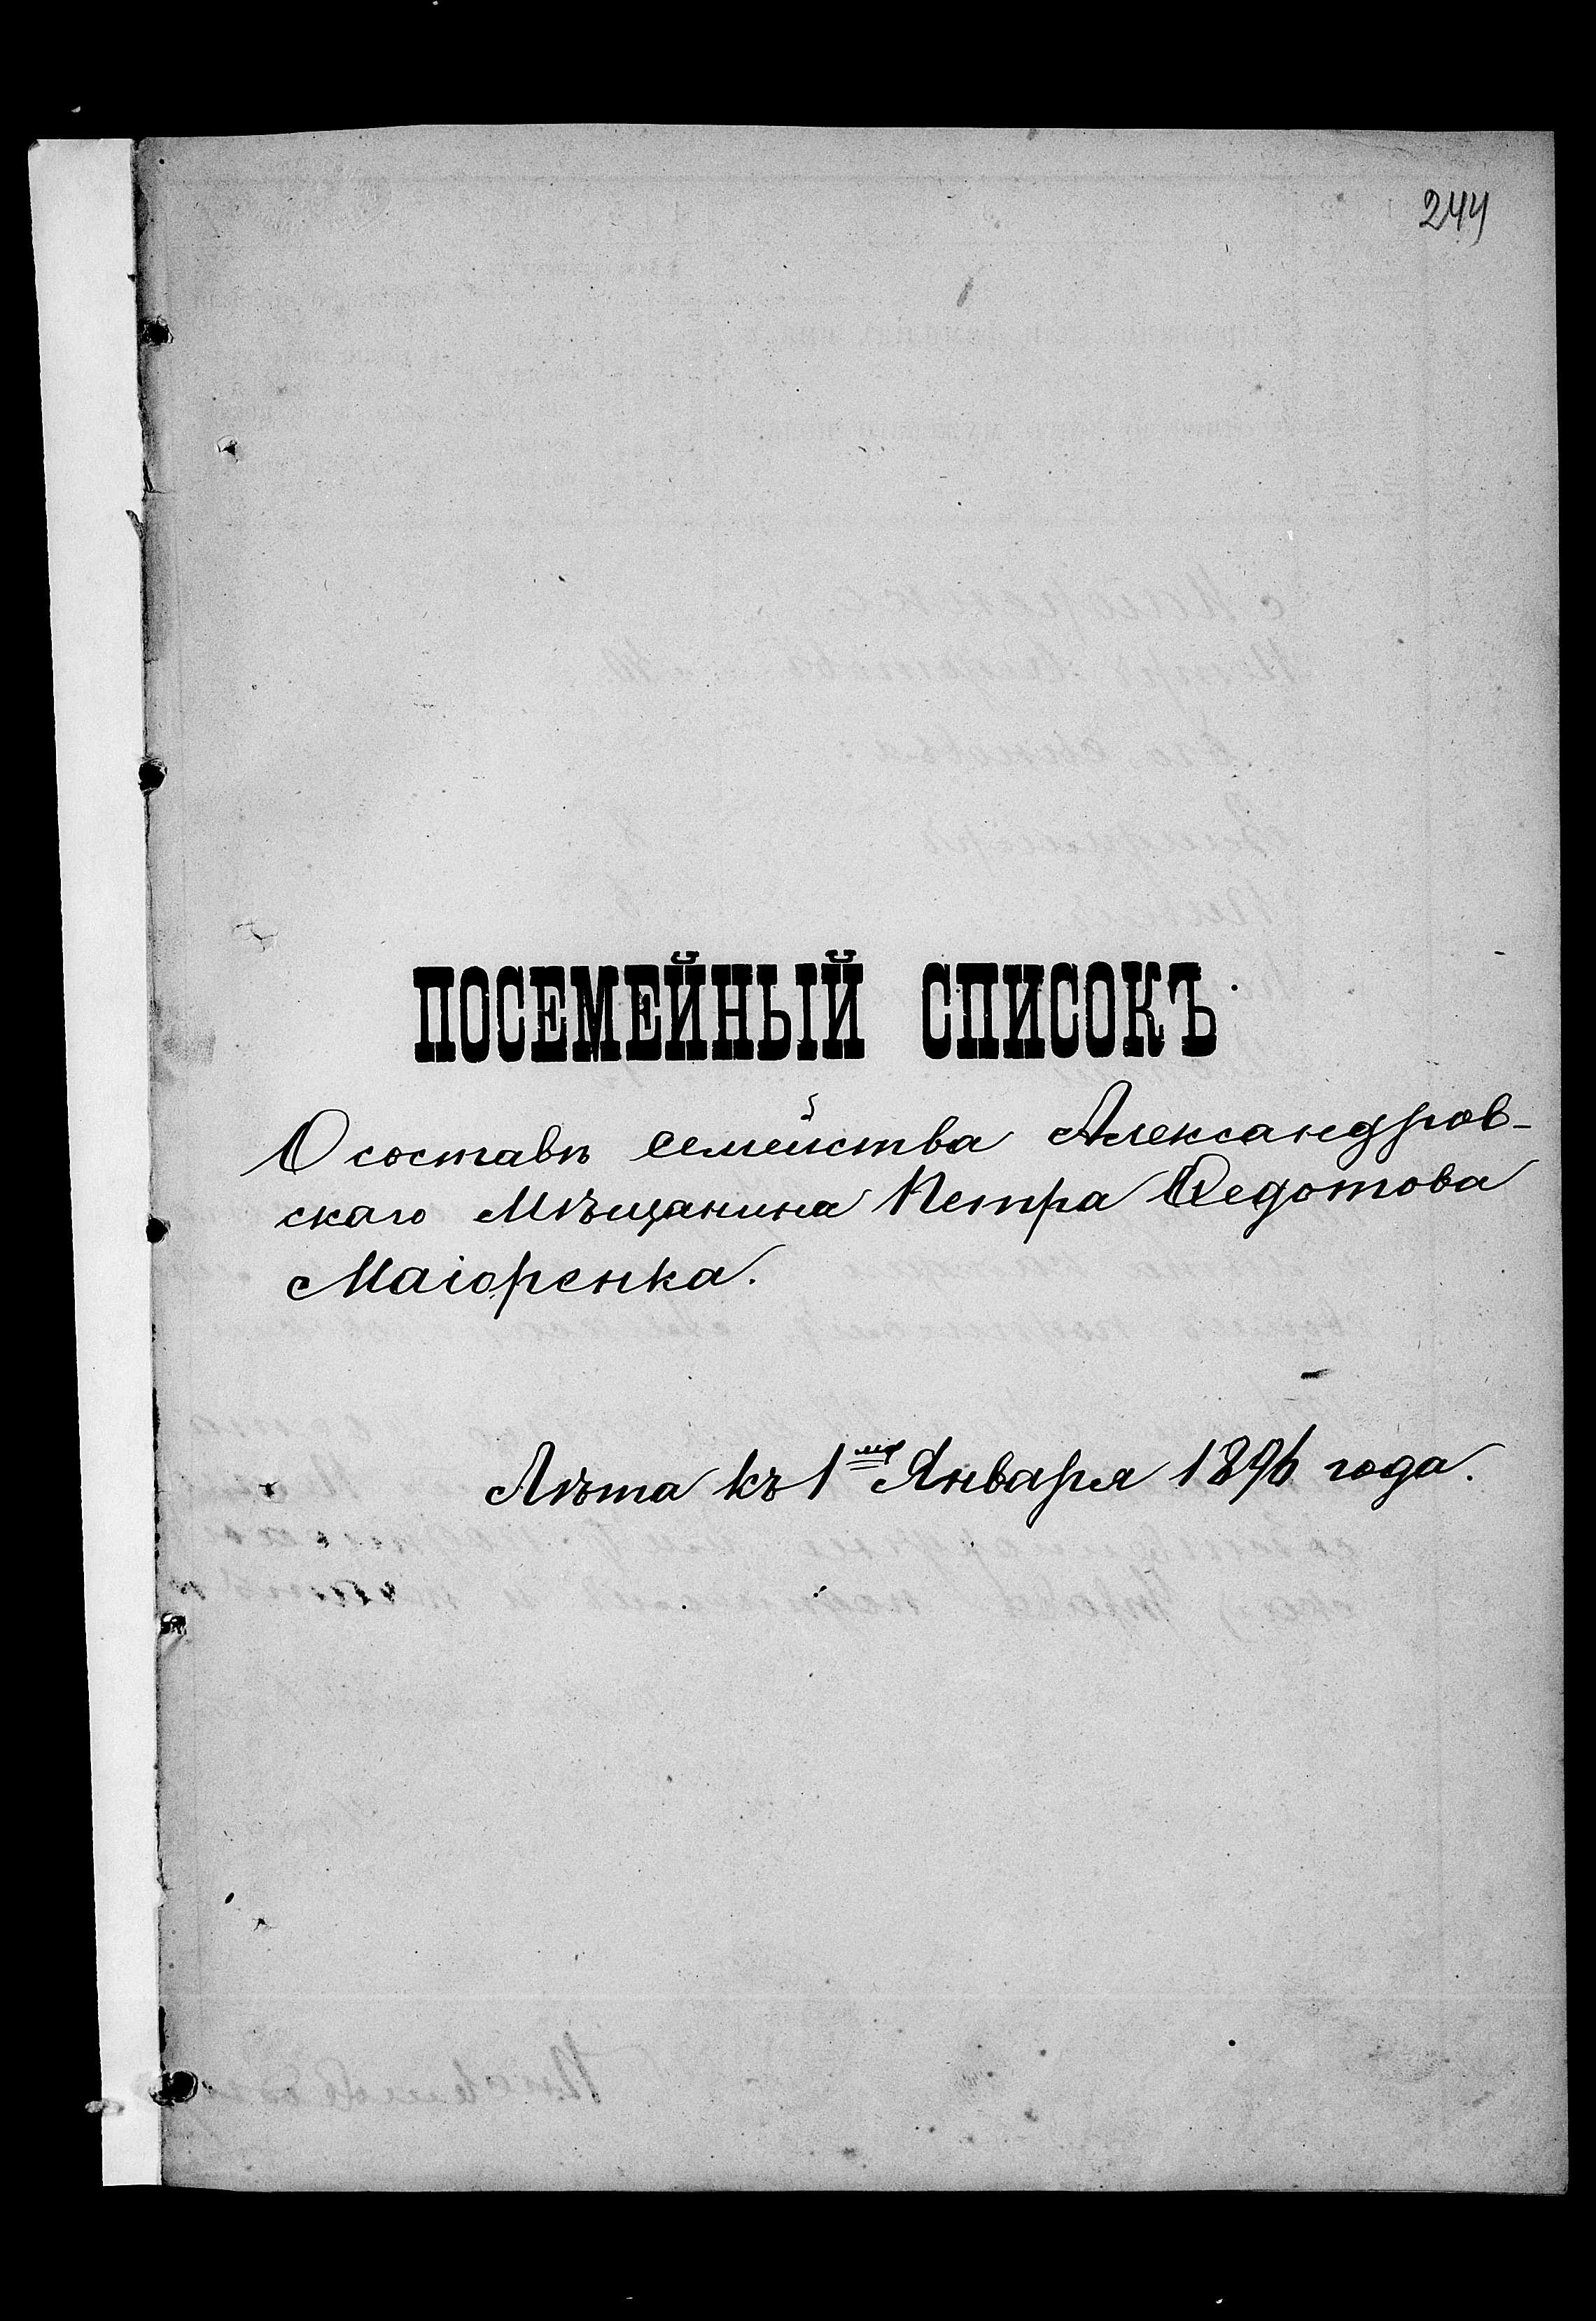 244
ПОСЕМЕЙНЫЙ СПИСОКЪ
О составѣ семейства Александров-
скаго Мѣщанина Петра Ѳедотова
Маіоренка.
Лѣта къ 1му Января 1896 года.